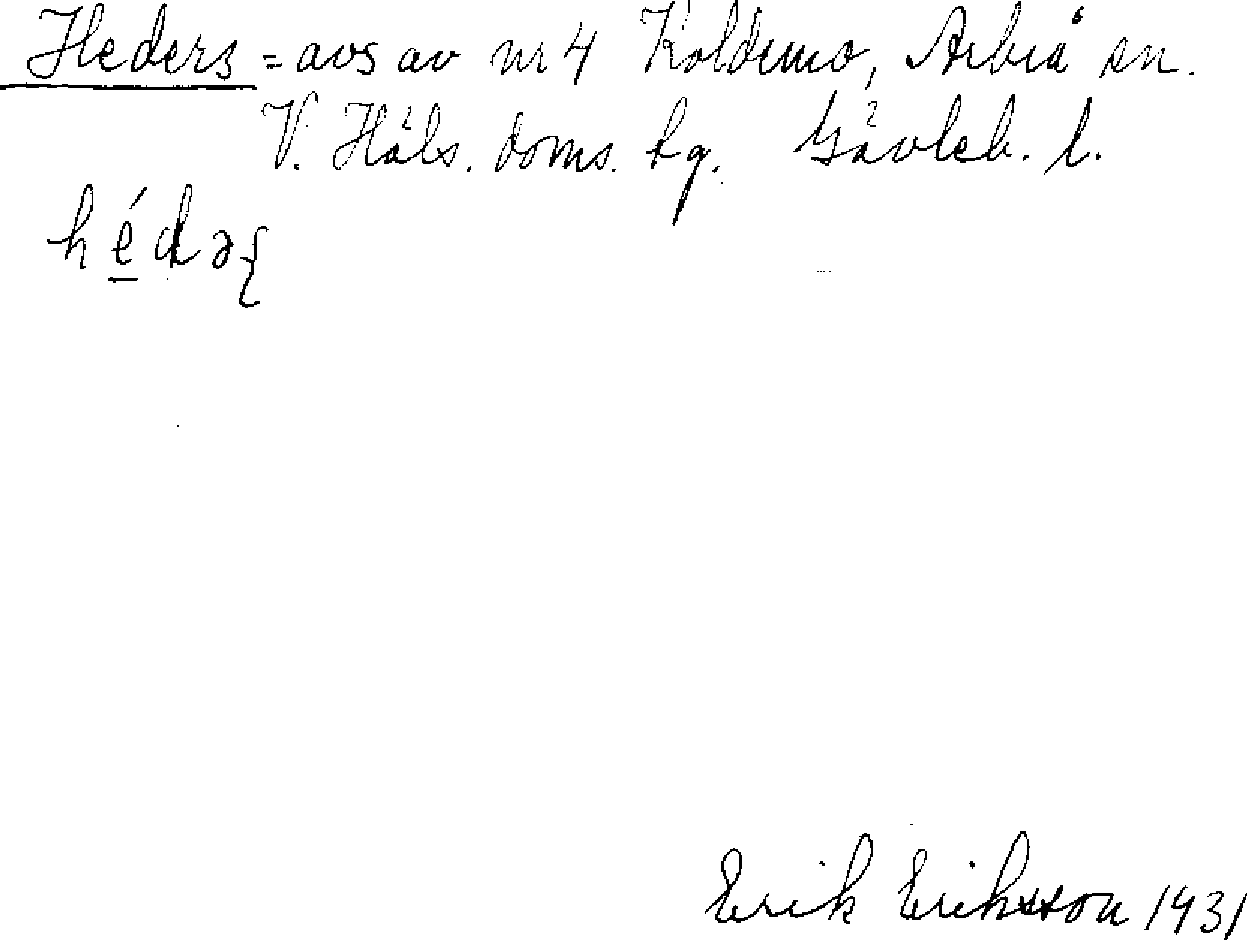 Heders = avs av nr 4 Koldemo, Arbrå sn.
V. Häls. doms. tg. Gävleb. l.
hé̲dəʂ
Erik Eriksson 1931